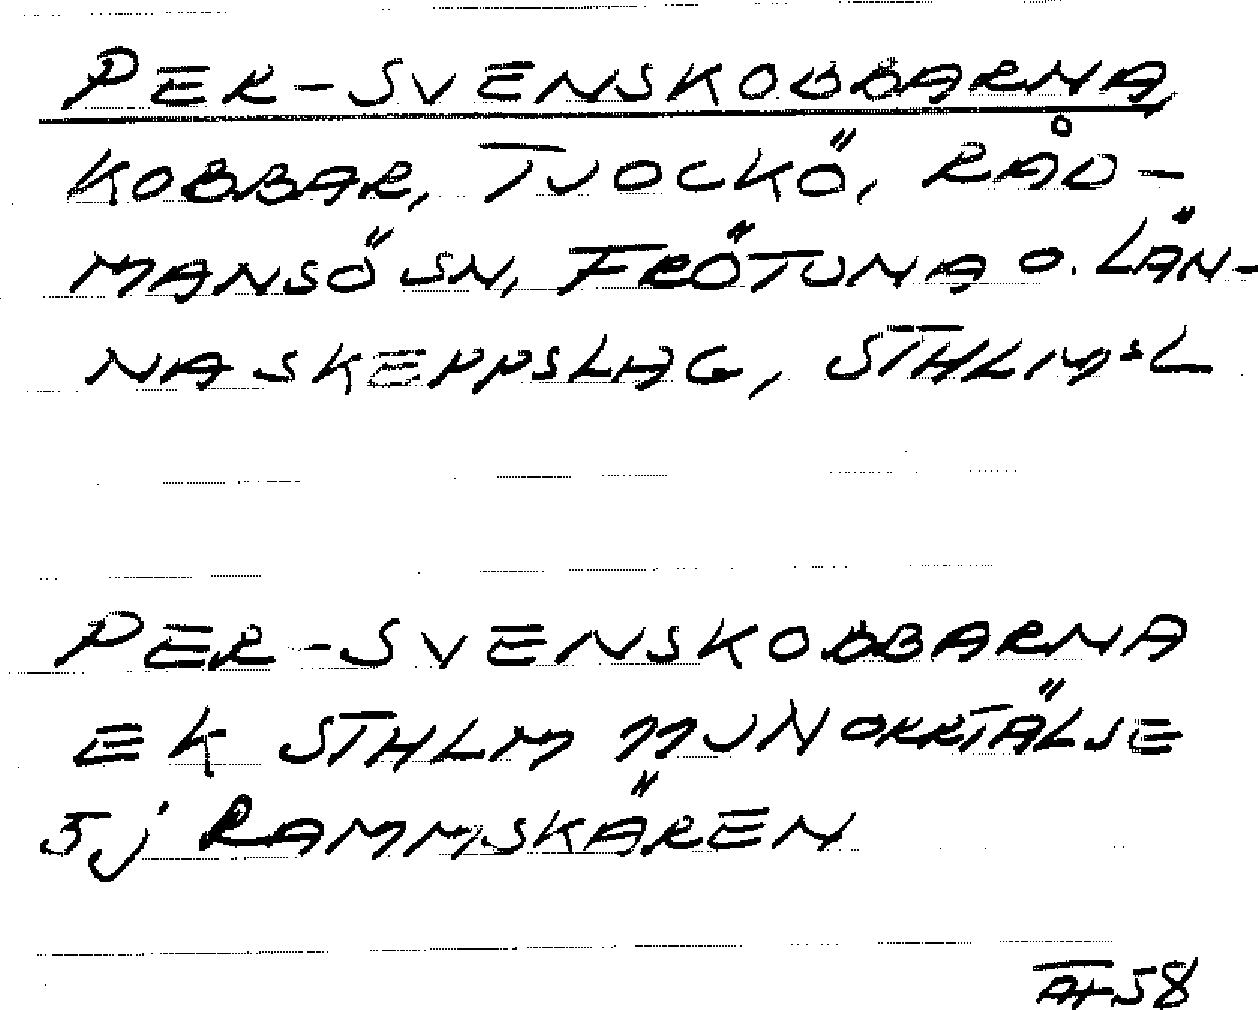 PER-SVENSKOBBARNA,
KOBBAR, TJOCKÖ, RÅD-
MANSÖ SN, FRÖTUNA O. LÄN-
NA SKEPPSLAG, STHLMS L
PER-SVENSKOBBARNA
EK STHLM NJ NORRTÄLJE
5j RAMMSKÄREN
AF 58